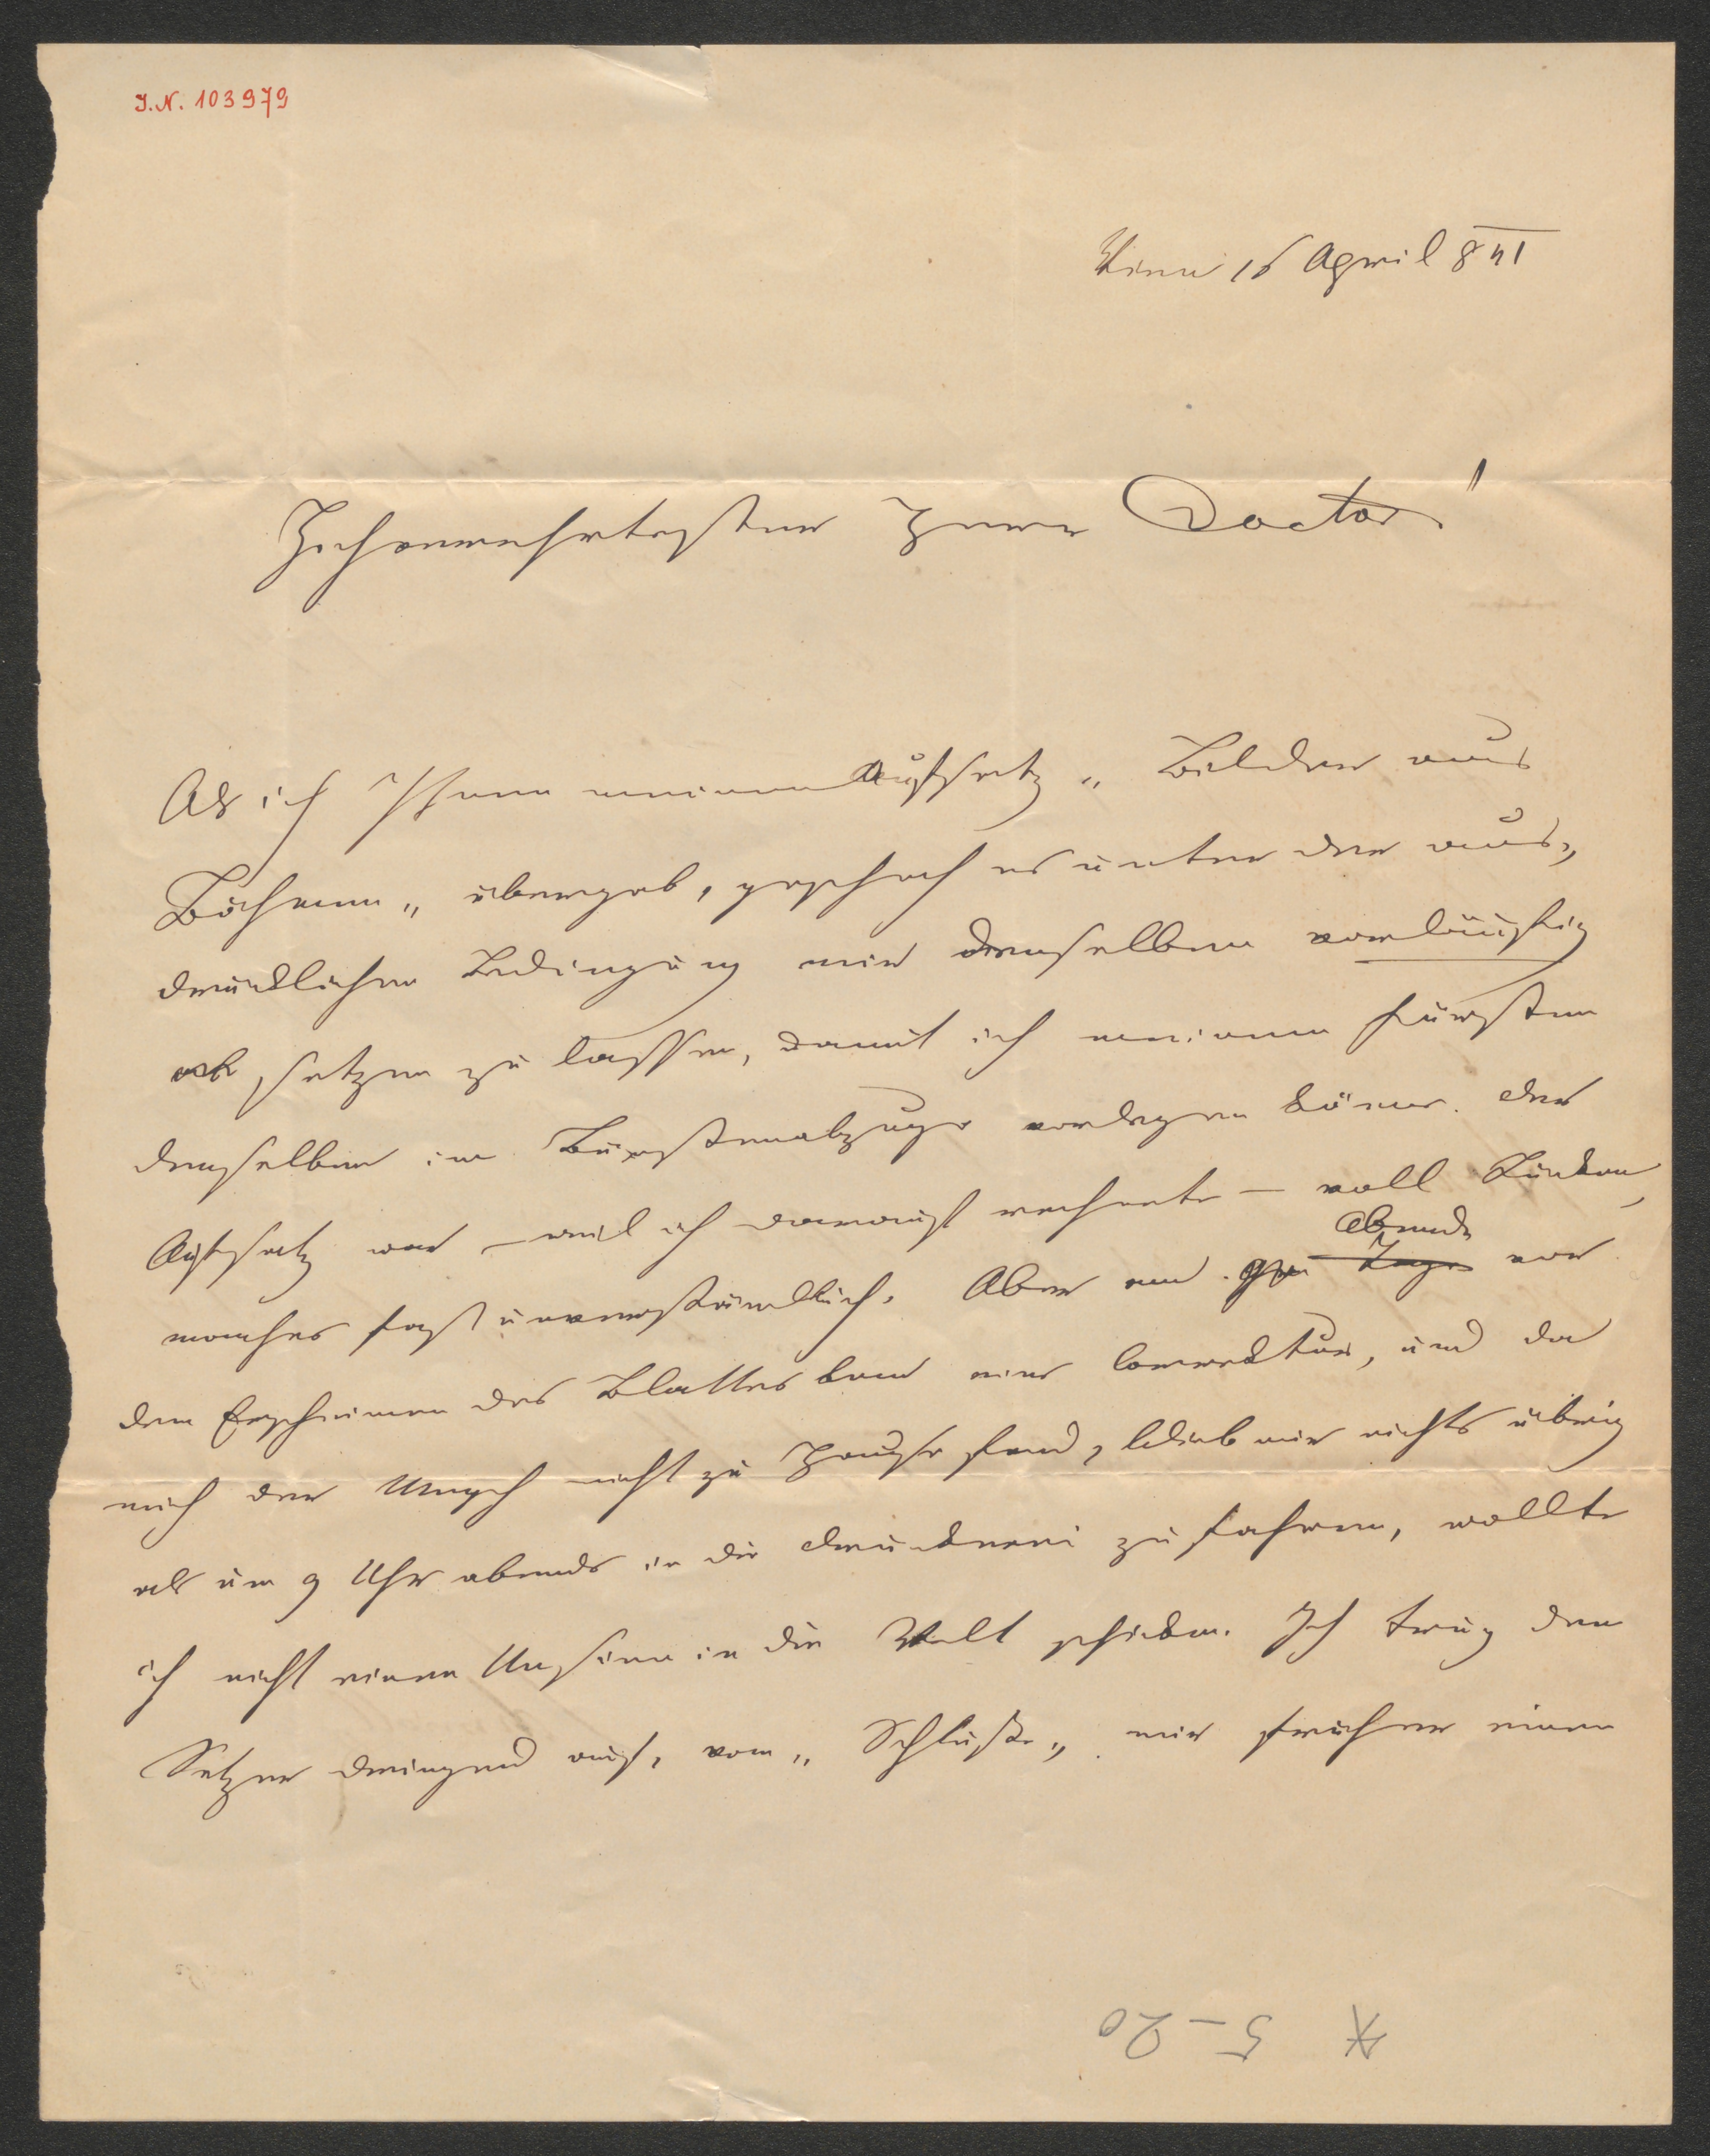 I.N. 103979
Wien 16 April 841
Hochverehrtester Herr Doctor!
Als ich Ihnen meinen Aufsatz „Bilder aus
Böhmen„ übergab, geschah es unter der aus„
drücklichen Bedingung mir denselben vorläufig
ab setzen zu lassen, damit ich meinem Fürsten
denselben im Bürstenabzuge vorlegen könne. Der
Aufsatz war – weil ich darauf rechnete – voll Lücken,
Abends
manches fast unverständlich. Aber am Tage vor
dem Erscheinen des Blattes kam eine Correktur, und da
mich der Mensch nicht zu Hause fand, blieb mir nichts übrig
als um 9 Uhr abends in die Druckerei zu fahren, wollte
ich nicht einen Unsinn in die Welt schicken. Ich trug dem
Setzer dringend auf, vom „Schluße„ mir früher einen
* 5–20